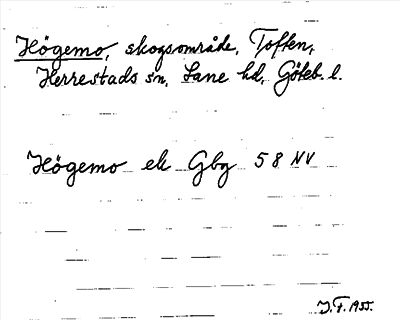 Högemo, skogsområde, Toften,
Herrestads sn, Lane hd, Göteb. l.
Högemo ek Gbg 58 NV
J.F. 1955.